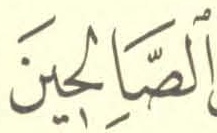 ٱلصَّالِحِينَ